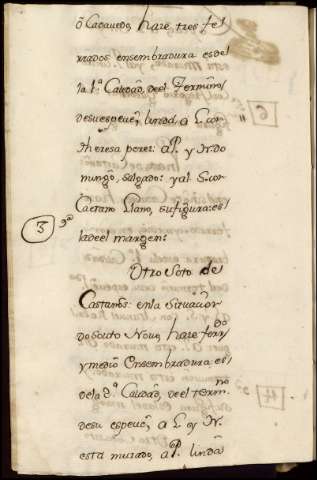 ô Cadavedo, hare tres fe-
rrados ensembradura es de
la 1ª Calidad, de el Termino
de su especie, linda a L. con
theresa perez: a P. y N. do
mingo, salgado: y al S. con
Caetano Llano, su figura: es
la de el margen:
3 9ª
Otro Soto de
Castaños: en la Situacion
do souto Novo, hare ferrdo
y medio Ensembradura es
de la 2ª Calidad, de el termno
de su especie, a L. y N.
esta murado, a P. linda